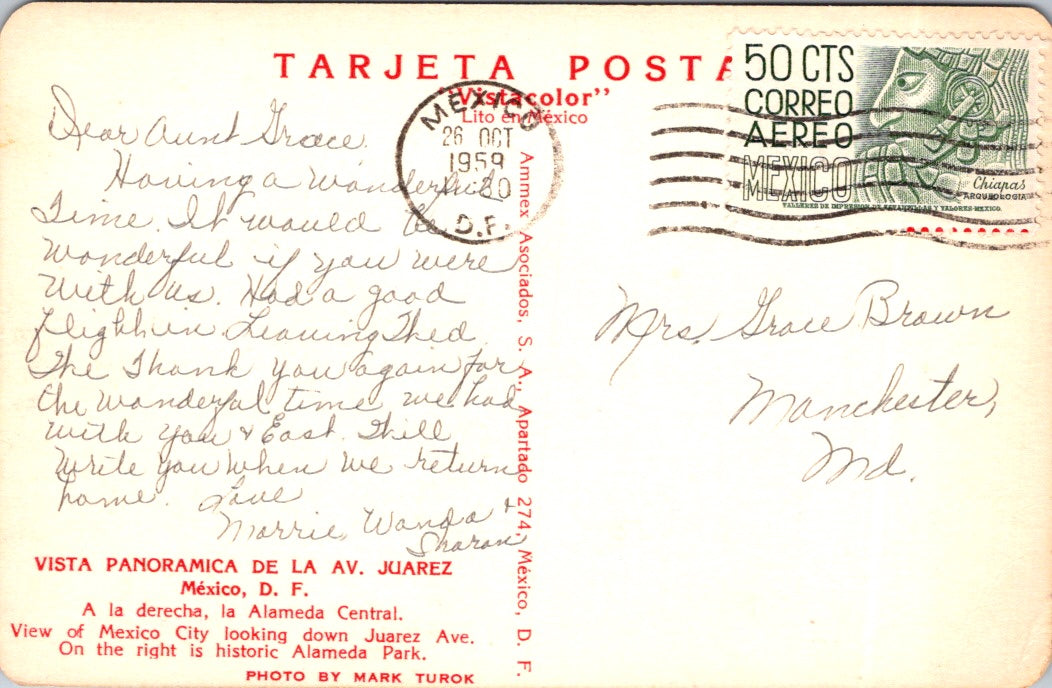 TARJETA POSTA
"Vistacolor"
Lito en México
MEXICO
26 OCT
1959
D.F.
50 CTS
CORREO
AEREO
MEXICO
Chiapas
ARQUEOLOGIA
TALLERES DE IMPRESION DE ESTAMPILLAS Y VALORES-MEXICO.
Dear Aunt Grace,
Having a wonderful
Time. It would be
wonderful if you were
with us. Had a good
flight in Leaving Thed.
The Thank you again for
the wonderful time we had
with you & East. Will
write you when we return
home. Love
Morrie, Wanda &
Sharon
Mrs. Grace Brown
Manchester,
Md.
Ammex Asociados, S. A., Apartado 274, México, D. F.
VISTA PANORAMICA DE LA AV. JUAREZ
México, D. F.
A la derecha, la Alameda Central.
View of Mexico City looking down Juarez Ave.
On the right is historic Alameda Park.
PHOTO BY MARK TUROK